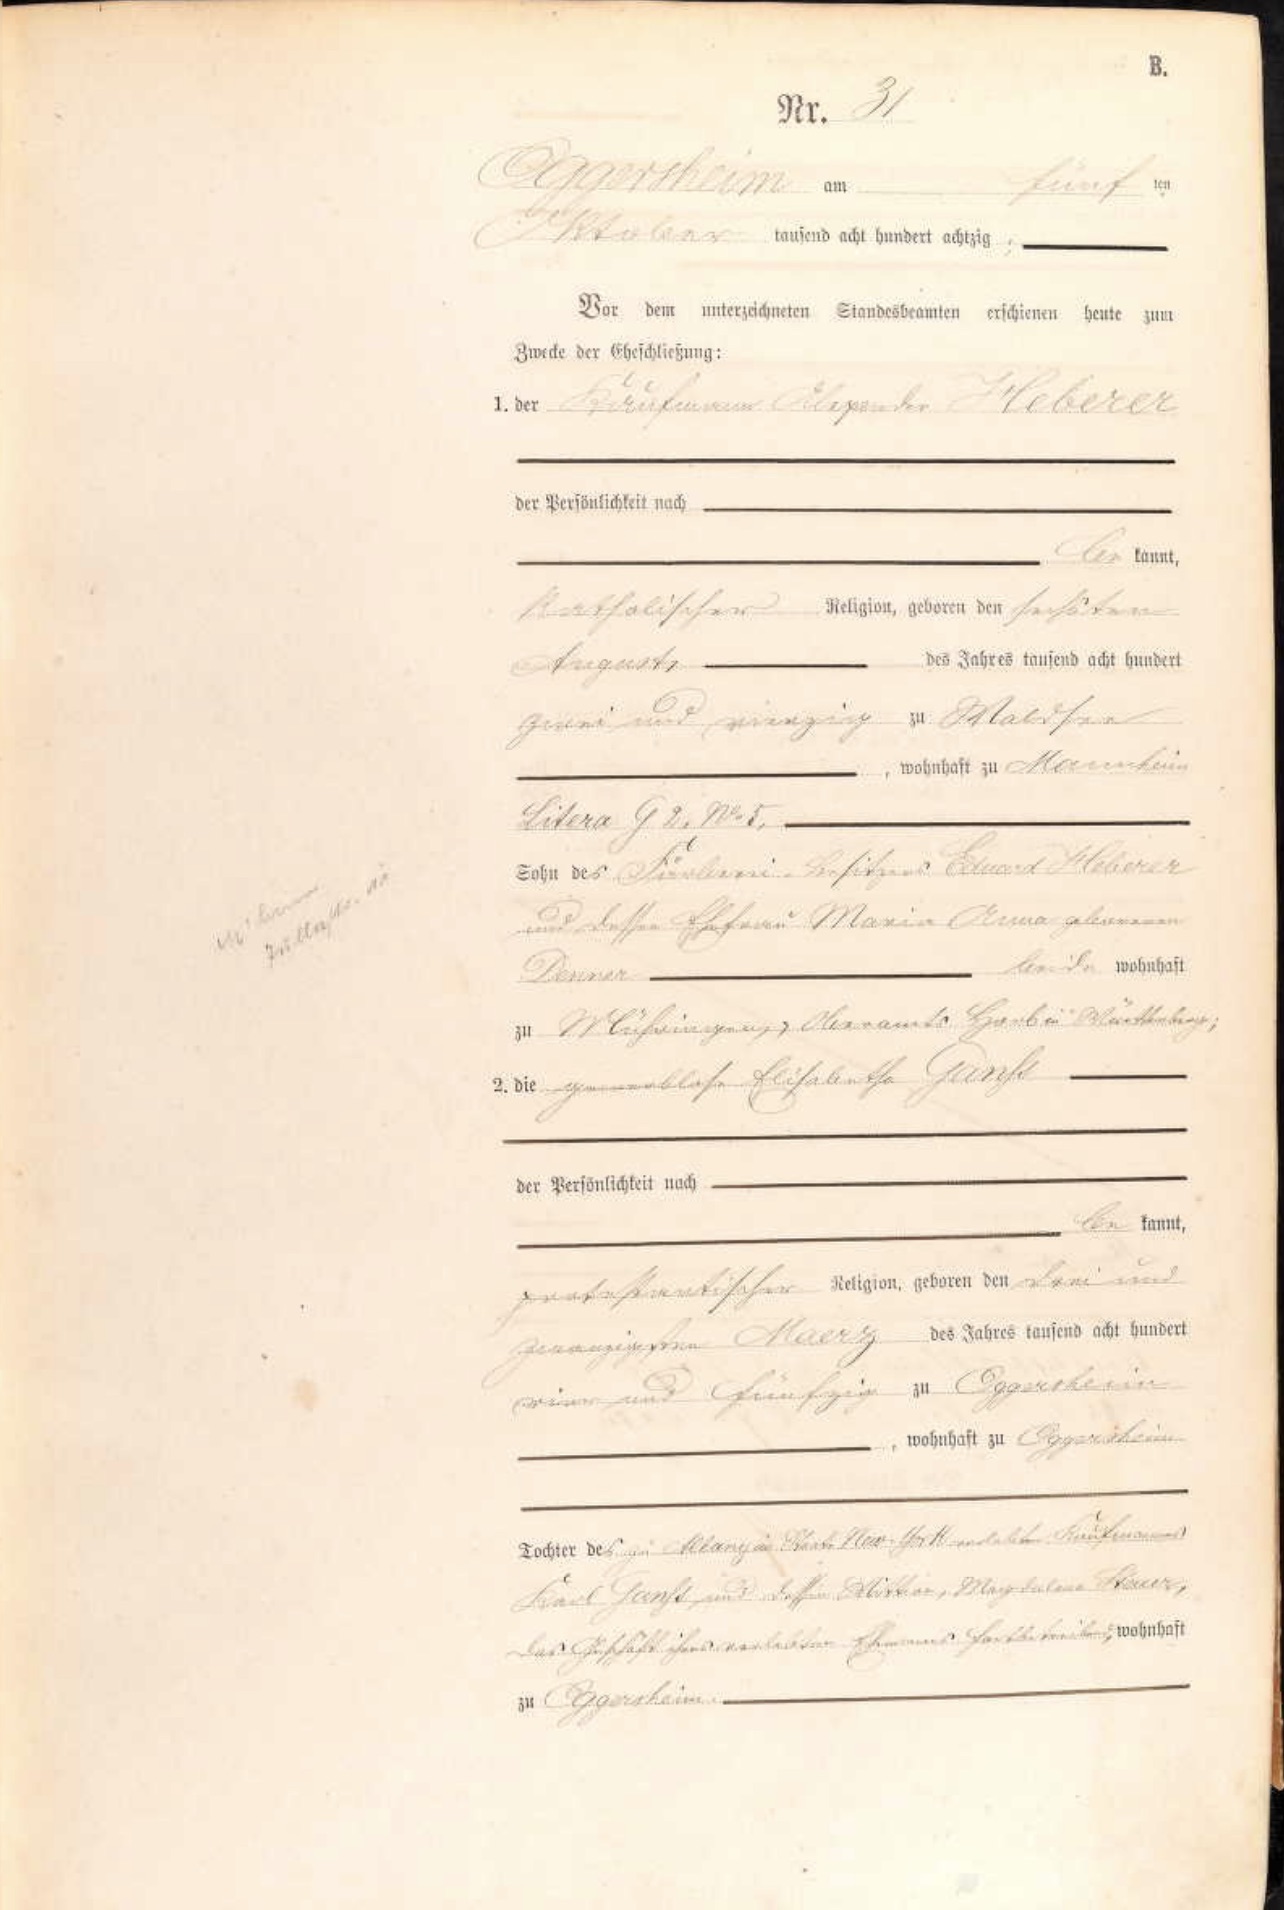 B.
Nr. 31
Oggersheim am fünf ten
Oktober tausend acht hundert achtzig ;
Vor dem unterzeichneten Standesbeamten erschienen heute zum
Zwecke der Eheschließung:
1. der Kaufmann Alexander Heberer
der Persönlichkeit nach
be kannt,
katholischer Religion, geboren den sechsten
August, des Jahres tausend acht hundert
zwei und vierzig zu Waldsee
, wohnhaft zu Mannheim
Litera G 2. No. 5.
Sohn des Färberei-Besitzers Eduard Heberer
und dessen Ehefrau Maria Anna geborenen
Denner beide wohnhaft
zu Mühringen, Oberamts Horb in Württemberg;
2. die gewerblose Elisabetha Ganßt
der Persönlichkeit nach
be kannt,
protestantischer Religion, geboren den drei und
zwanzigsten Maerz des Jahres tausend acht hundert
vier und fünfzig zu Oggersheim
, wohnhaft zu Oggersheim
Tochter des zu Albany im Staate New-York verlebten Kaufmannes
Karl Ganßt und dessen Wittwe, Magdalena Steuer,
das Geschäft ihres verlebten Ehemannes fortbetreibend, wohnhaft
zu Oggersheim.